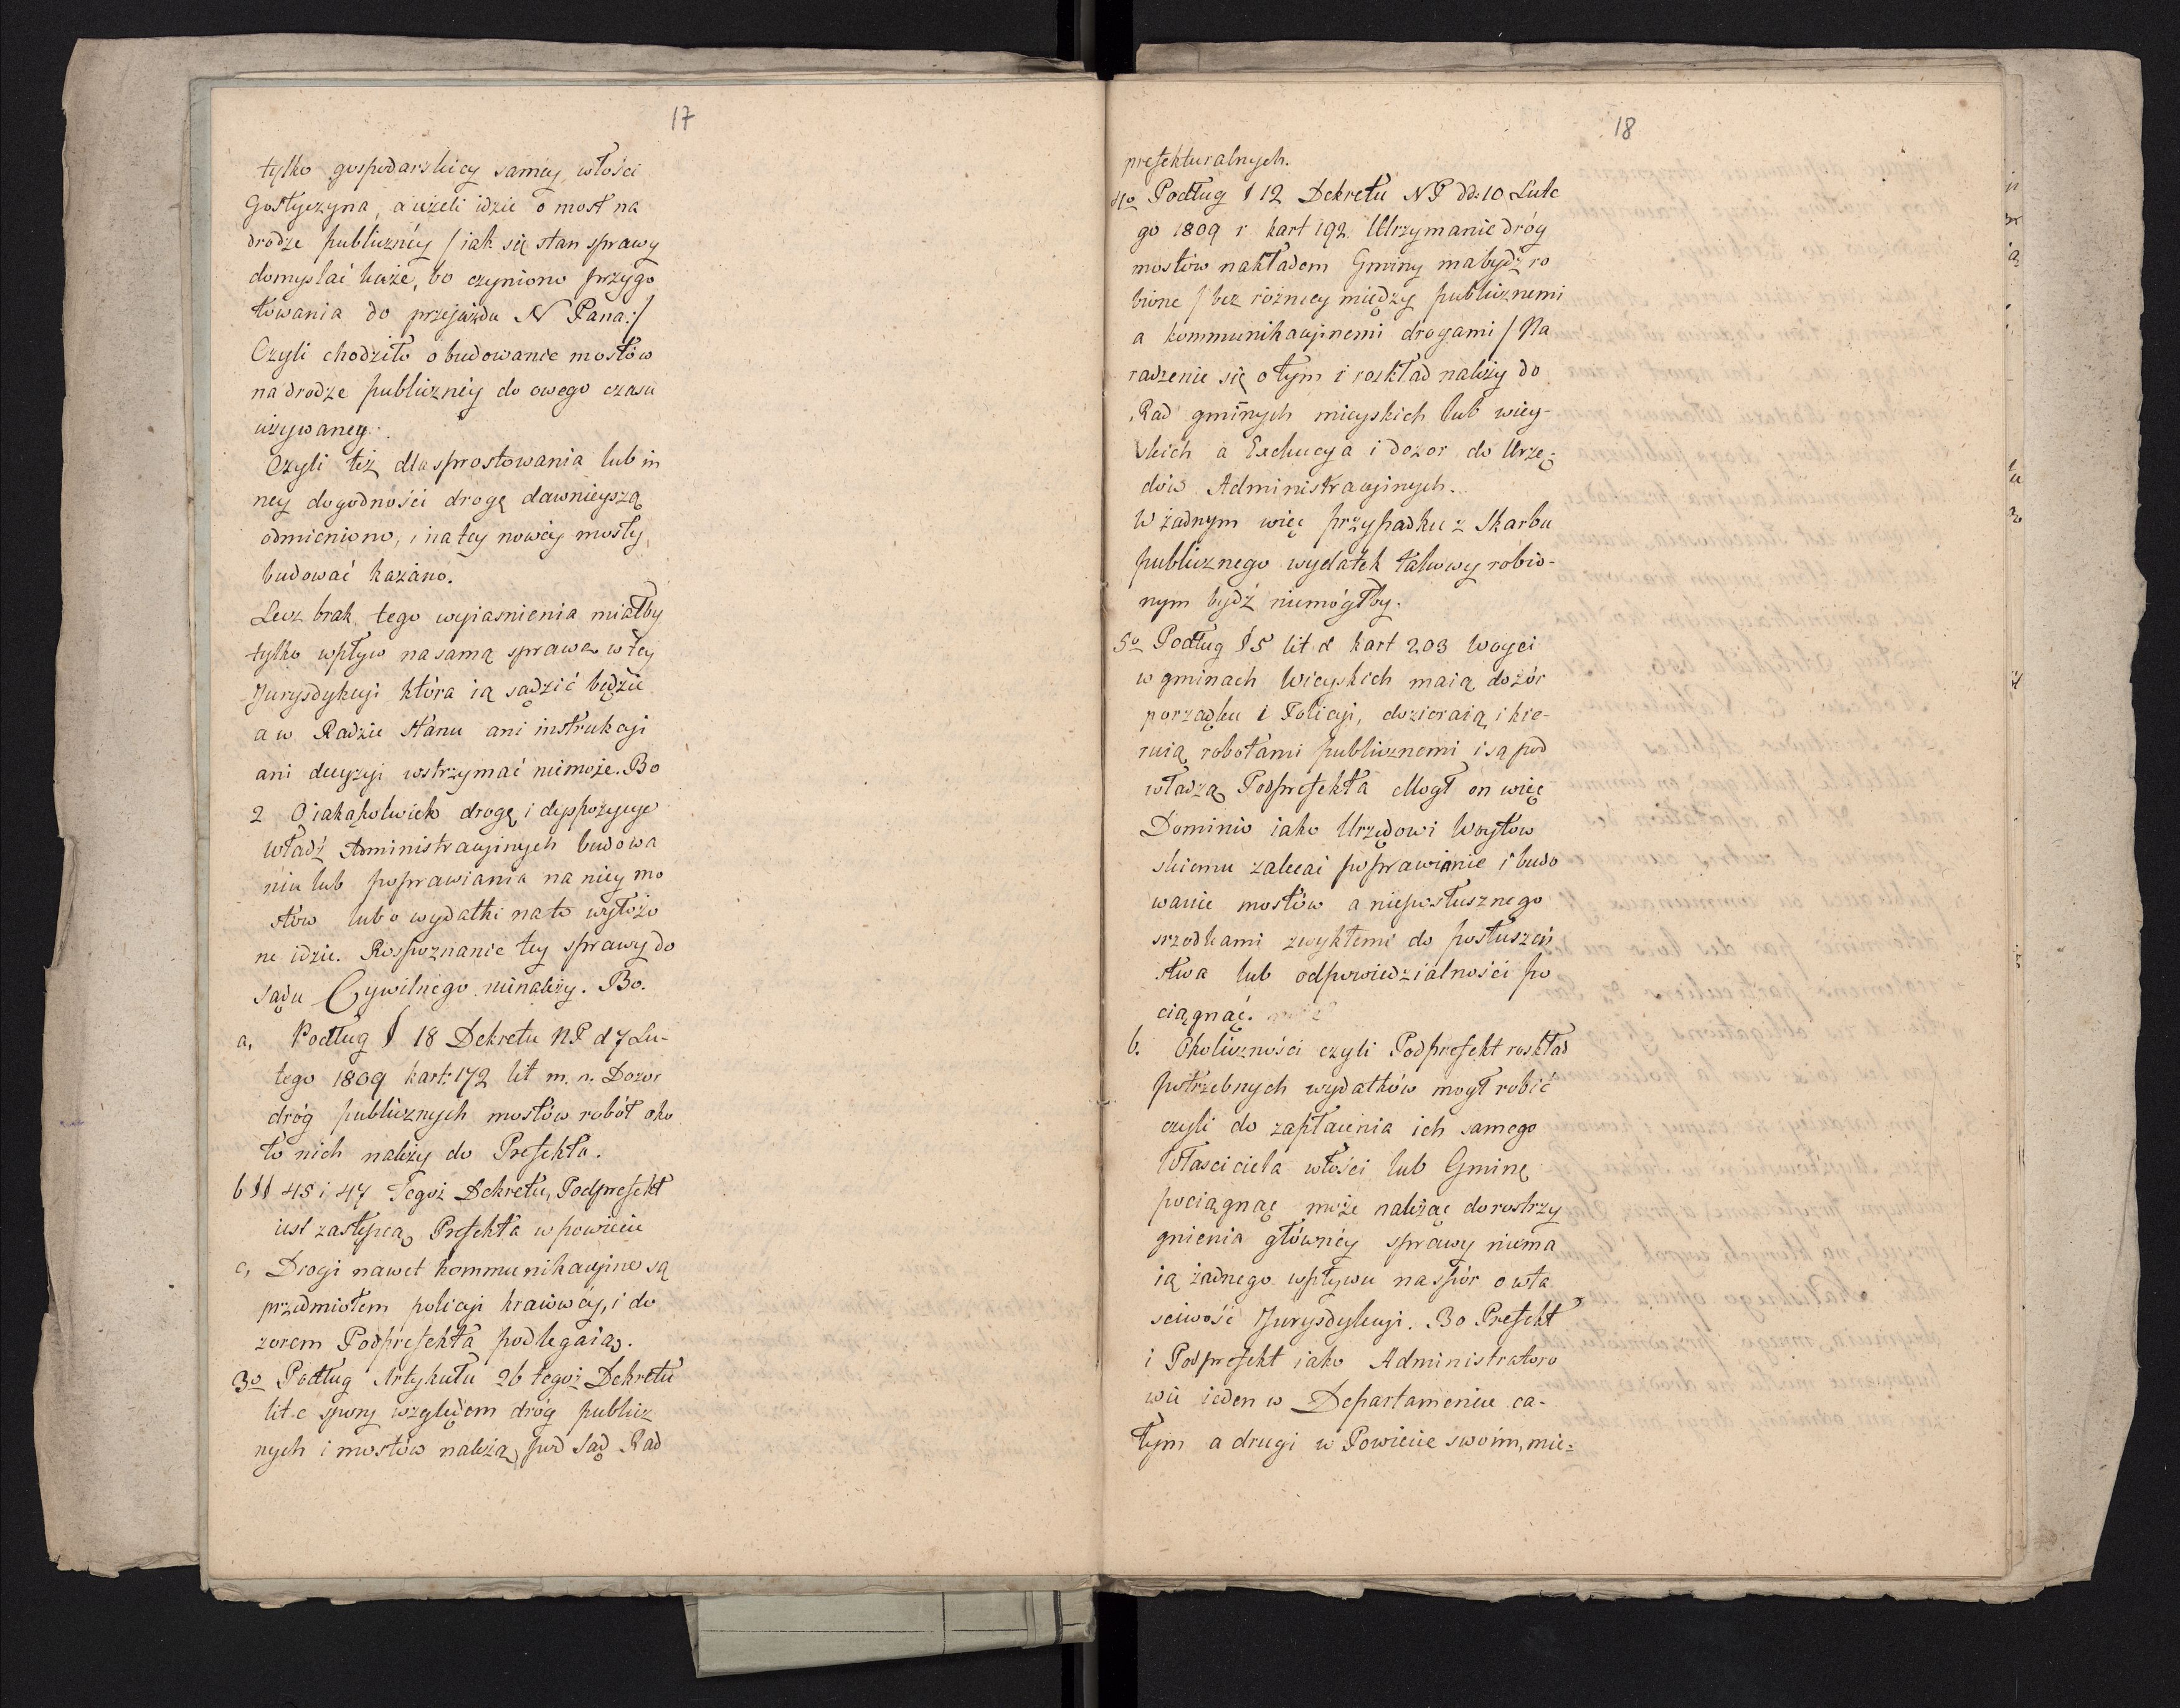 17
tylko gospodarskiey saméy włości
Gostyczyna, a ieżeli idzie o most na
drodze publicznéy / iak się stan sprawy
domyslać każe, bo czyniono przygo
towania do przejazdu N Pana:/
Czyli chodziło o budowanie mostów
na drodze publicznéy do owego czasu
używaney.
Czyli też dla sprostowania lub in
ney dogodności drogę dawnieyszą
odmieniono, i na tey nowéy mosty
budować kazano.
Lecz brak tego wyiasnienia miałby
tylko wpływ na samą sprawę w tey
Jurysdykcyi która ią sądzić będzie
a w Radzie Stanu ani instrukcyi
ani decyzyi wstrzymać niemoże. Bo
2 O iakąkolwiek drogę i dyspozycye
Władz Administracyinych budowa
nia lub poprawiania na niey mo
stów lub o wydatki na to wyłożo
ne idzie. Rospoznanie tey sprawy do
sądu Cywilnego nienależy. Bo.
a, Podług § 18 Dekretu NP d 7 Lu-
tego 1809 kart: 172 lit m. n. Dozor
dróg publicznych mostów robót oko
ło nich należy do Prefekta.
b §§ 45 i 47 Tegoż Dekretu, Podprefekt
iest zastępcą Prefekta w powiecie
c, Drogi nawet kommunikacyine są
przedmiotem policyi kraiowéy, i do
zorem Podprefekta podlegaią.
3o Podług Artykułu 26 tegoż Dekretu
lit. c spory względem dróg publicz
nych i mostów należą pod Sąd Rad
18
prefekturalnych.
4o Podług § 12 Dekretu NP dd: 10 Lute
go 1809 r kart 192. Utrzymanie dróg
mostów nakładem Gminy ma bydź ro
bione / bez różnicy między publicznemi
a kommunikacyinemi drogami / Na
radzenie się o tym i rozkład należy do
Rad gminych mieyskich lub wiey-
skich a Exekucya i dozor do Urzę-
dów Administracyinych.
W żadnym więc przypadku z Skarbu
publicznego wydatek takowy robio-
nym bydź niemógłby.
5o Podług § 5 lit d kart 203 Woyci
w gminach Wieyskich maią dozór
porządku i Policyi, dozieraią i kie-
ruią robotami publicznemi i są pod
władzą Podprefekta Mogł on więc
Dominio iako Urzędowi Woytow
skiemu zalecać poprawianie i budo
wanie mostów a nieposłusznego
srzodkami zwykłemi do posłuszeń
stwa lub odpowiedzialności po
ciągnąć.
6. Okoliczności czyli Podprefekt roskład
potrzebnych wydatków mogł robić
czyli do zapłacenia ich samego
Własciciela włości lub Gminę
pociągnąć może należąc do rostrzy
gnienia głównéy sprawy niema
ią żadnego wpływu na spór o wła
sciwość Jurysdykcyi. Bo Prefekt
i Podprefekt iako Administratoro
wie ieden w Departamencie ca-
łym a drugi w Powiecie swoim, mie=